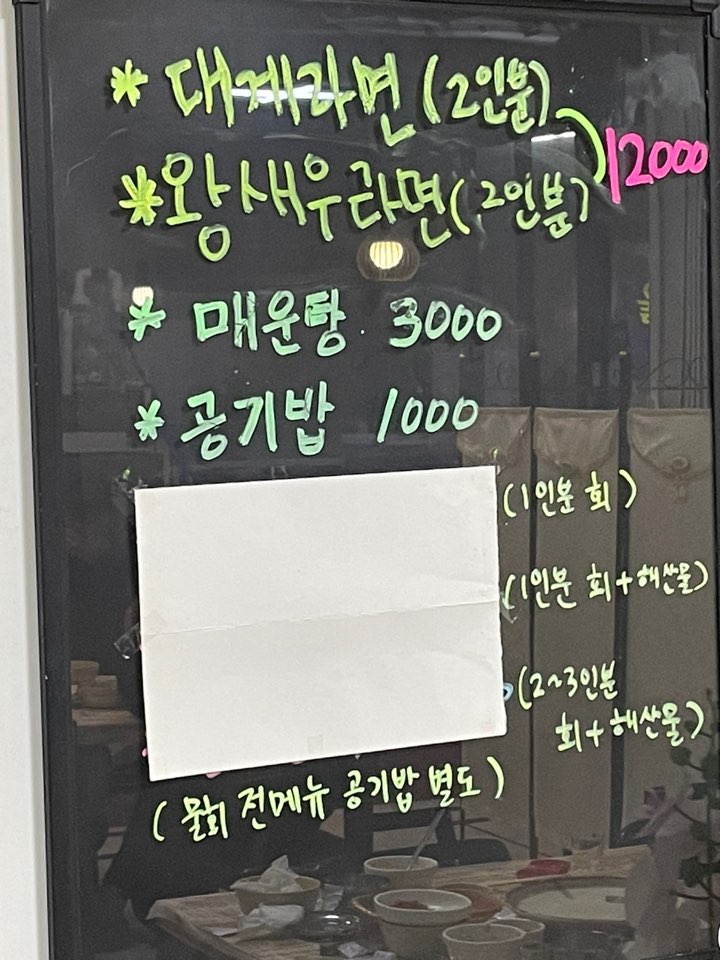 * 대게라면 (2인분)
12000
* 왕새우라면 (2인분)
* 매운탕 3000
* 공기밥 1000
(1인분 회)
(1인분 회+해산물)
(2~3인분
회+해산물)
(물회 전메뉴 공기밥 별도)